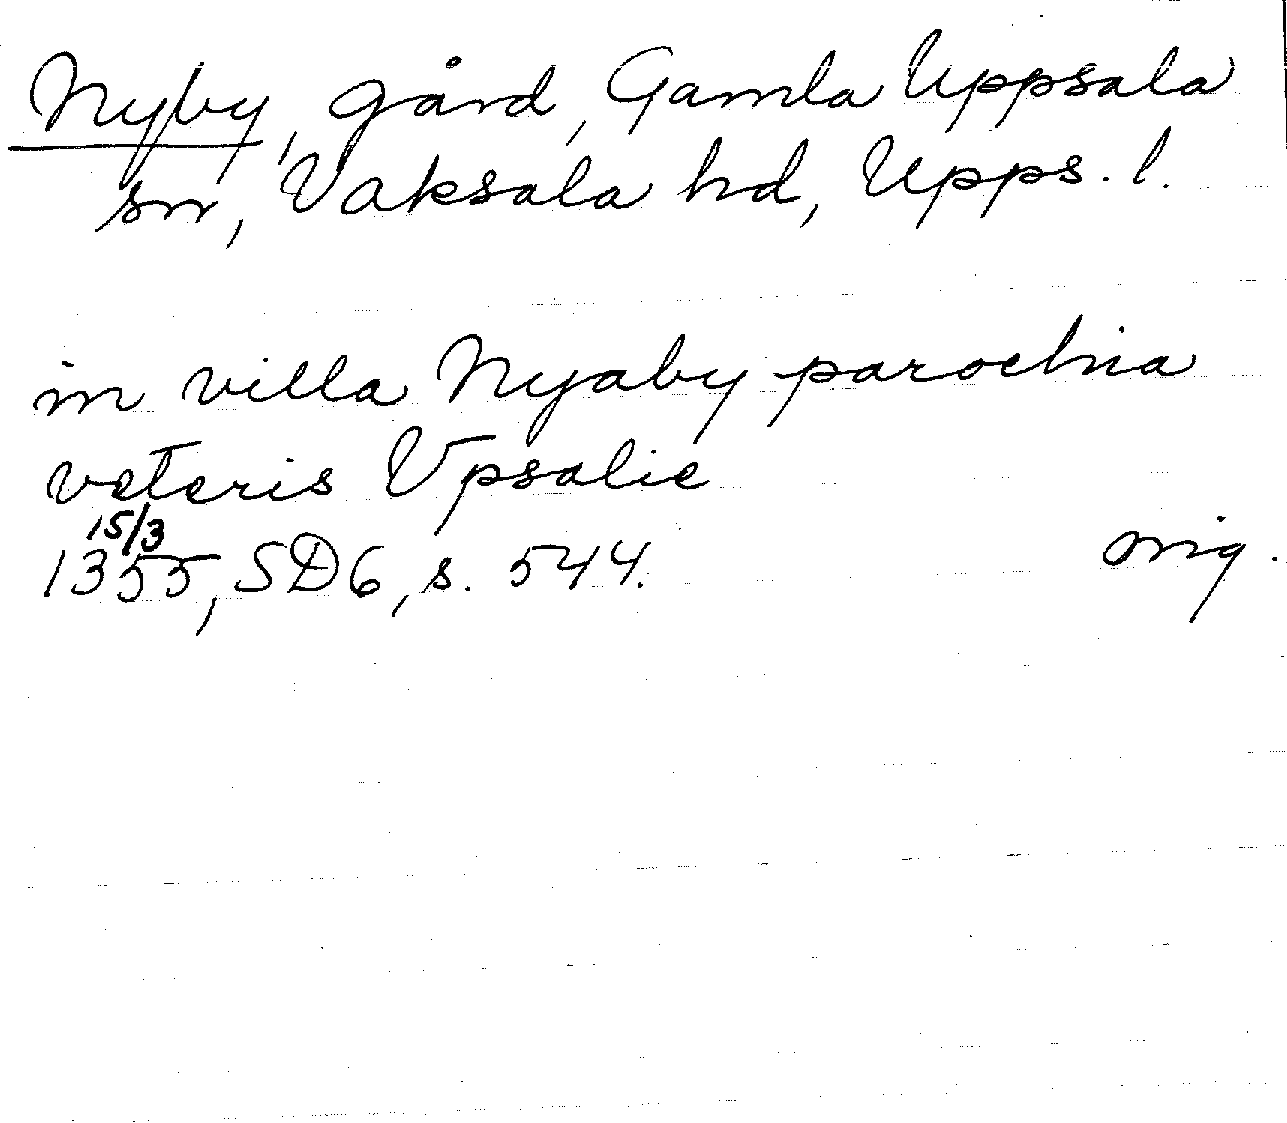 Nyby, gård, Gamla Uppsala
sn, Vaksala hd, Upps. l.
in villa Nyaby parochia
veteris Vpsalie
15/3
1355, SD6, s. 544. orig.